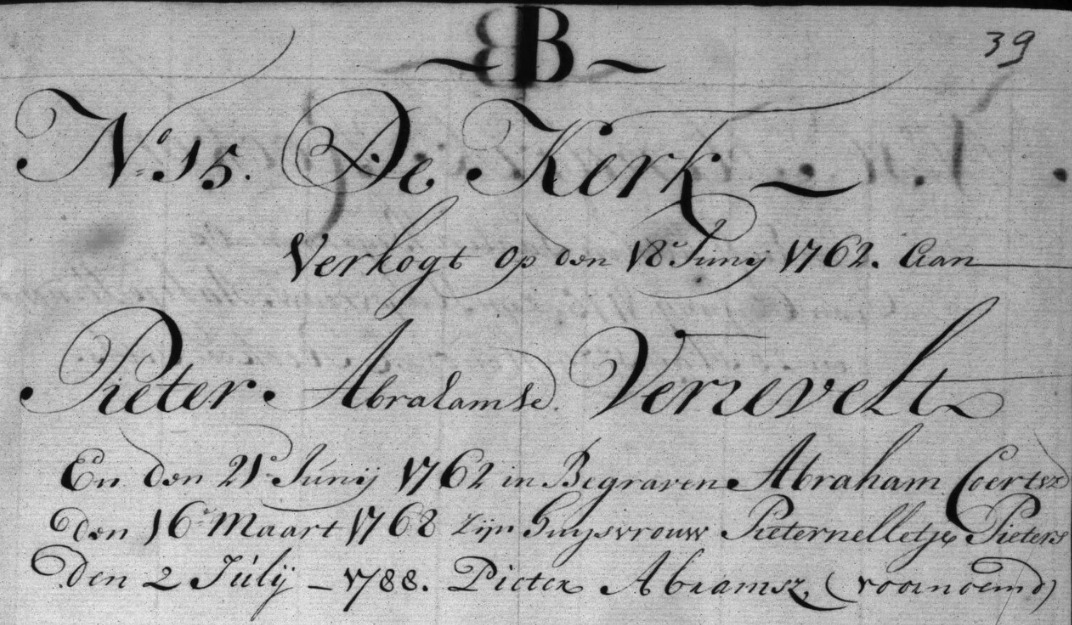 B 39
No. 15. De Kerk
Verkogt op den 18e Junij 1762. Aan
Pieter Abrahamse. Verrevelt
En den 21e Junij 1762 in Begraven Abraham Coertsz
den 16e Maart 1768 zijn Huysvrouw Pieternelletje Pieters
Den 2 Julij - 1788. Pieter Abramsz, (voornoemd)